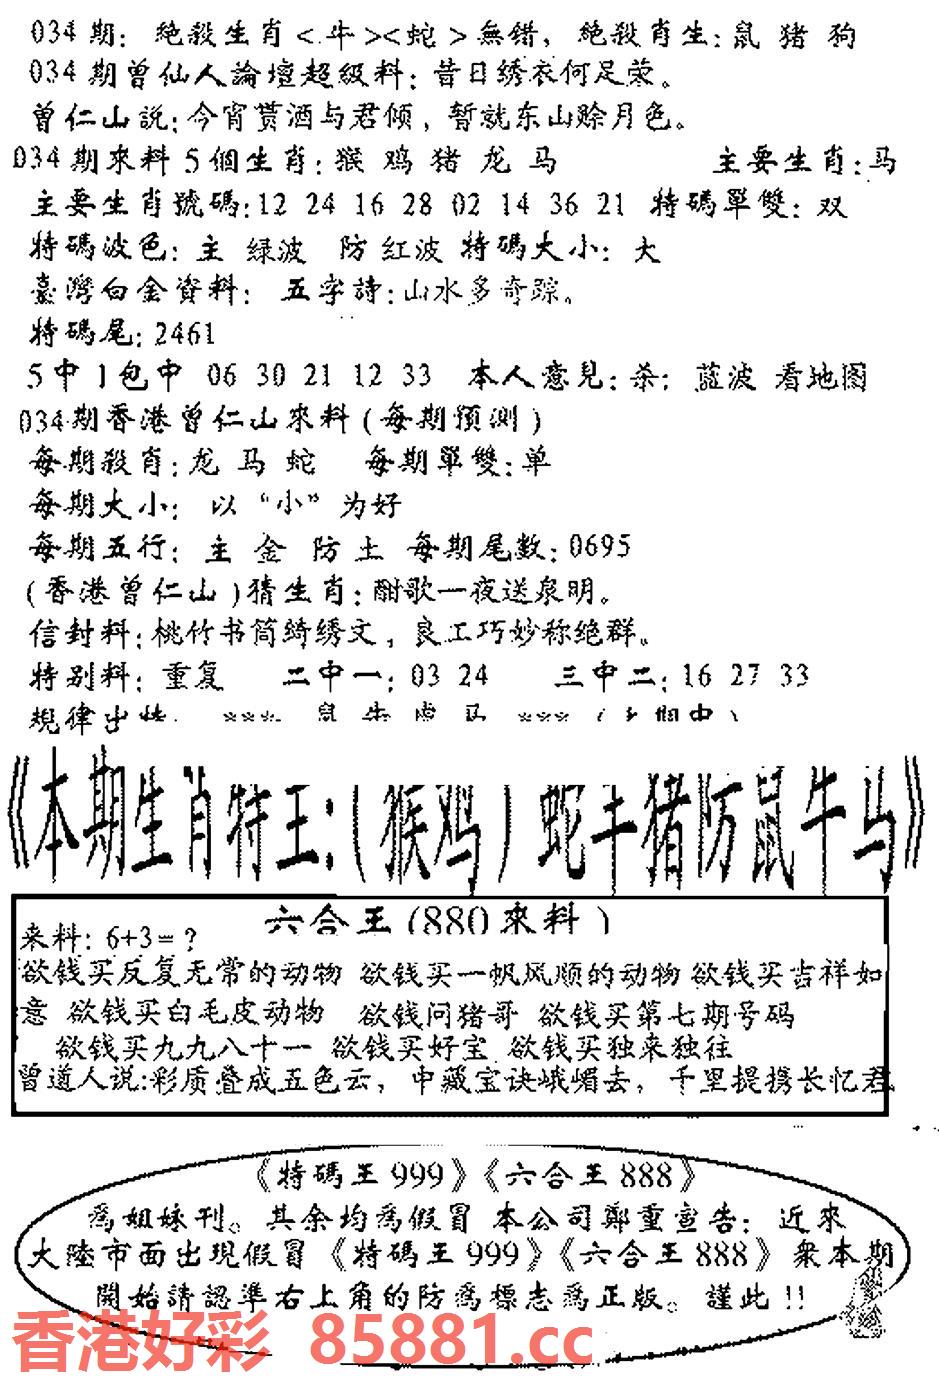 034期：絶殺生肖<牛><蛇>無錯，絶殺肖生：鼠 猪 狗
034期曾仙人論壇超級料：昔日绣衣何足荣。
曾仁山説：今宵贳酒与君倾，暂就东山赊月色。
034期來料 5個生肖：猴 鸡 猪 龙 马 主要生肖：马
主要生肖號碼：12 24 16 28 02 14 36 21 特碼單雙：双
特碼波色：主 绿波 防 红波 特碼大小：大
臺灣白金資料： 五字詩：山水多奇踪。
特碼尾：2461
5中1包中 06 30 21 12 33 本人意見：杀：蓝波 看地图
034期香港曾仁山來料（每期預測）
每期殺肖：龙 马 蛇 每期單雙：单
每期大小： 以“小”为好
每期五行： 主 金 防 土 每期尾数：0695
（香港曾仁山）猜生肖：酣歌一夜送泉明。
信封料：桃竹书筒绮绣文，良工巧妙称绝群。
特别料：重复 二中一：03 24 三中二：16 27 33
規律出特： *** 鼠 牛 虎 马 ***（上期中）
《本期生肖特王：（猴鸡）蛇羊猪防鼠牛马》
六合王（880來料）
来料：6+3=？
欲钱买反复无常的动物 欲钱买一帆风顺的动物 欲钱买吉祥如
意 欲钱买白毛皮动物 欲钱问猪哥 欲钱买第七期号码
欲钱买九九八十一 欲钱买好宝 欲钱买独来独往
曾道人说：彩质叠成五色云，中藏宝诀峨嵋去，千里提携长忆君
《特碼王999》《六合王888》
為姐妹刊。其余均為假冒 本公司鄭重宣告：近來
大陸市面出現假冒《特碼王999》《六合王888》衆本期
開始請認準右上角的防為標志為正版。謹此!!
香港好彩 85881.cc